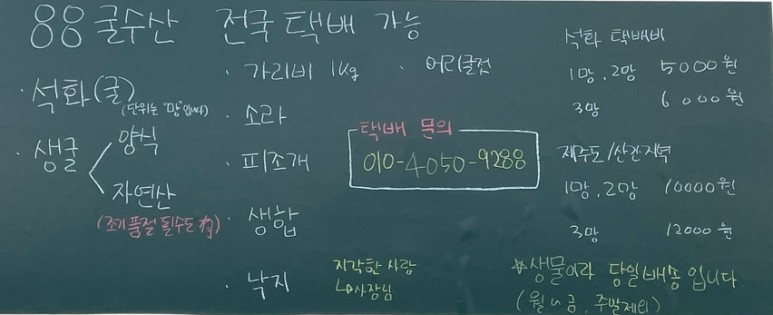 88 굴수산 전국 택배 가능
· 석화(굴)
(단위는 "망"입니다)
· 생굴
양식
자연산
(조기품절 될수도 有)
· 가리비 1kg
· 소라
· 피조개
· 생합
· 낙지
· 어리굴젓
택배 문의
010-4050-9288
지각한 사람
↳사장님
석화 택배비
1망, 2망 5000원
3망 6000원
제주도/산간지역
1망, 2망 10000원
3망 12000원
☆생물이라 당일배송 입니다.
(월~금, 주말제외)